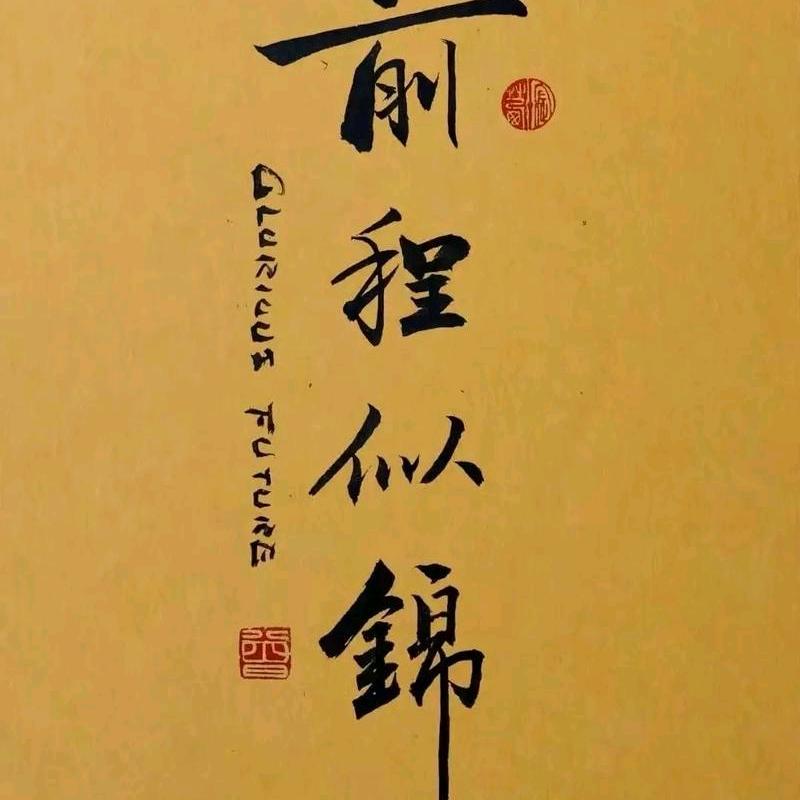 前程似錦
GLORIOUS FUTURE